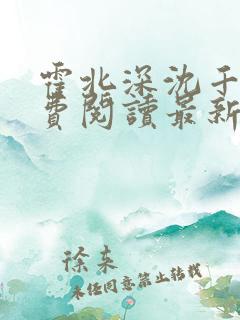 霍北深沈千
費閱讀最新
徐来
未经同意禁止转载